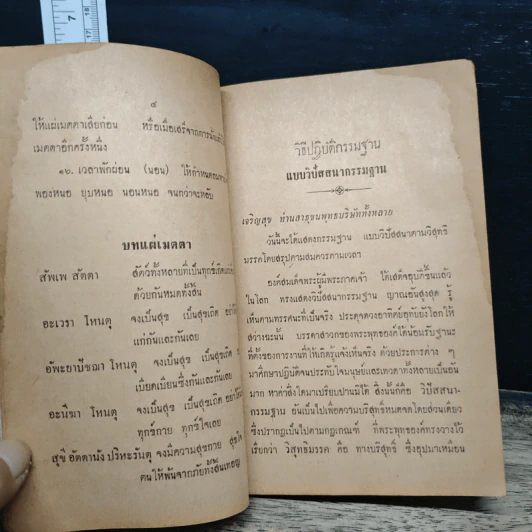 ๔
ให้แผ่เมตตาเสียก่อน หรือเมื่อเสร็จจากการนั่งแล้ว
เมตตาอีกครั้งหนึ่ง
๑๖. เวลาพักผ่อน (นอน) ให้กำหนดอาการ
พองหนอ ยุบหนอ นอนหนอ จนกว่าจะหลับ
บทแผ่เมตตา
สัพเพ สัตตา สัตว์ทั้งหลายที่เป็นทุกข์เกิดแก่เจ็บ
ด้วยกันหมดทั้งสิ้น
อะเวรา โหนตุ จงเป็นสุข เป็นสุขเถิด อย่าได้
แก่กันและกันเลย
อัพะยาปัชฌา โหนตุ จงเป็นสุข เป็นสุขเถิด
เบียดเบียนซึ่งกันและกันเลย
อะนีฆา โหนตุ จงเป็นสุข เป็นสุขเถิด อย่าได้
ทุกข์กาย ทุกข์ใจเลย
สุขี อัตตานัง ปริหะรันตุ จงมีความสุขกาย สุขใจ
ตนให้พ้นจากภัยทั้งสิ้นเทอญ
วิธีปฏิบัติกรรมฐาน
แบบวิปัสสนากรรมฐาน
เจริญสุข ท่านสาธุชนพุทธบริษัททั้งหลาย
วันนี้จะได้แสดงกรรมฐาน แบบวิปัสสนาตามวิสุทธิ
มรรคโดยสรุปตามสมควรตามเวลา
องค์สมเด็จพระผู้มีพระภาคเจ้า ได้เสด็จอุบัติขึ้นแล้ว
ในโลก ทรงแสดงวิปัสสนากรรมฐาน ญาณอันสูงสุด รู้
เห็นตามทรรศนะที่เป็นจริง ประดุจดวงอาทิตย์อุทัยยังโลกให้
สว่างฉะนั้น บรรดาสาวกของพระพุทธองค์ได้น้อมรับฐานะ
ที่ตั้งของการงานที่ให้เกิดรู้แจ้งเห็นจริง ด้วยประการต่าง ๆ
มาศึกษาปฏิบัติจนประทับใจมนุษย์และเทวดาทั้งหลายเป็นอัน
มาก หาค่าสิ่งใดมาเปรียบปานมิได้ สิ่งนั้นก็คือ วิปัสสนา-
กรรมฐาน อันเป็นไปเพื่อความบริสุทธิ์หมดจดโดยส่วนเดียว
ซึ่งปรากฏเป็นไปตามกฎเกณฑ์ ที่พระพุทธองค์ทรงวางไว้
เรียกว่า วิสุทธิมรรค คือ ทางบริสุทธิ์ ซึ่งอุปมาเหมือน
7
17
18